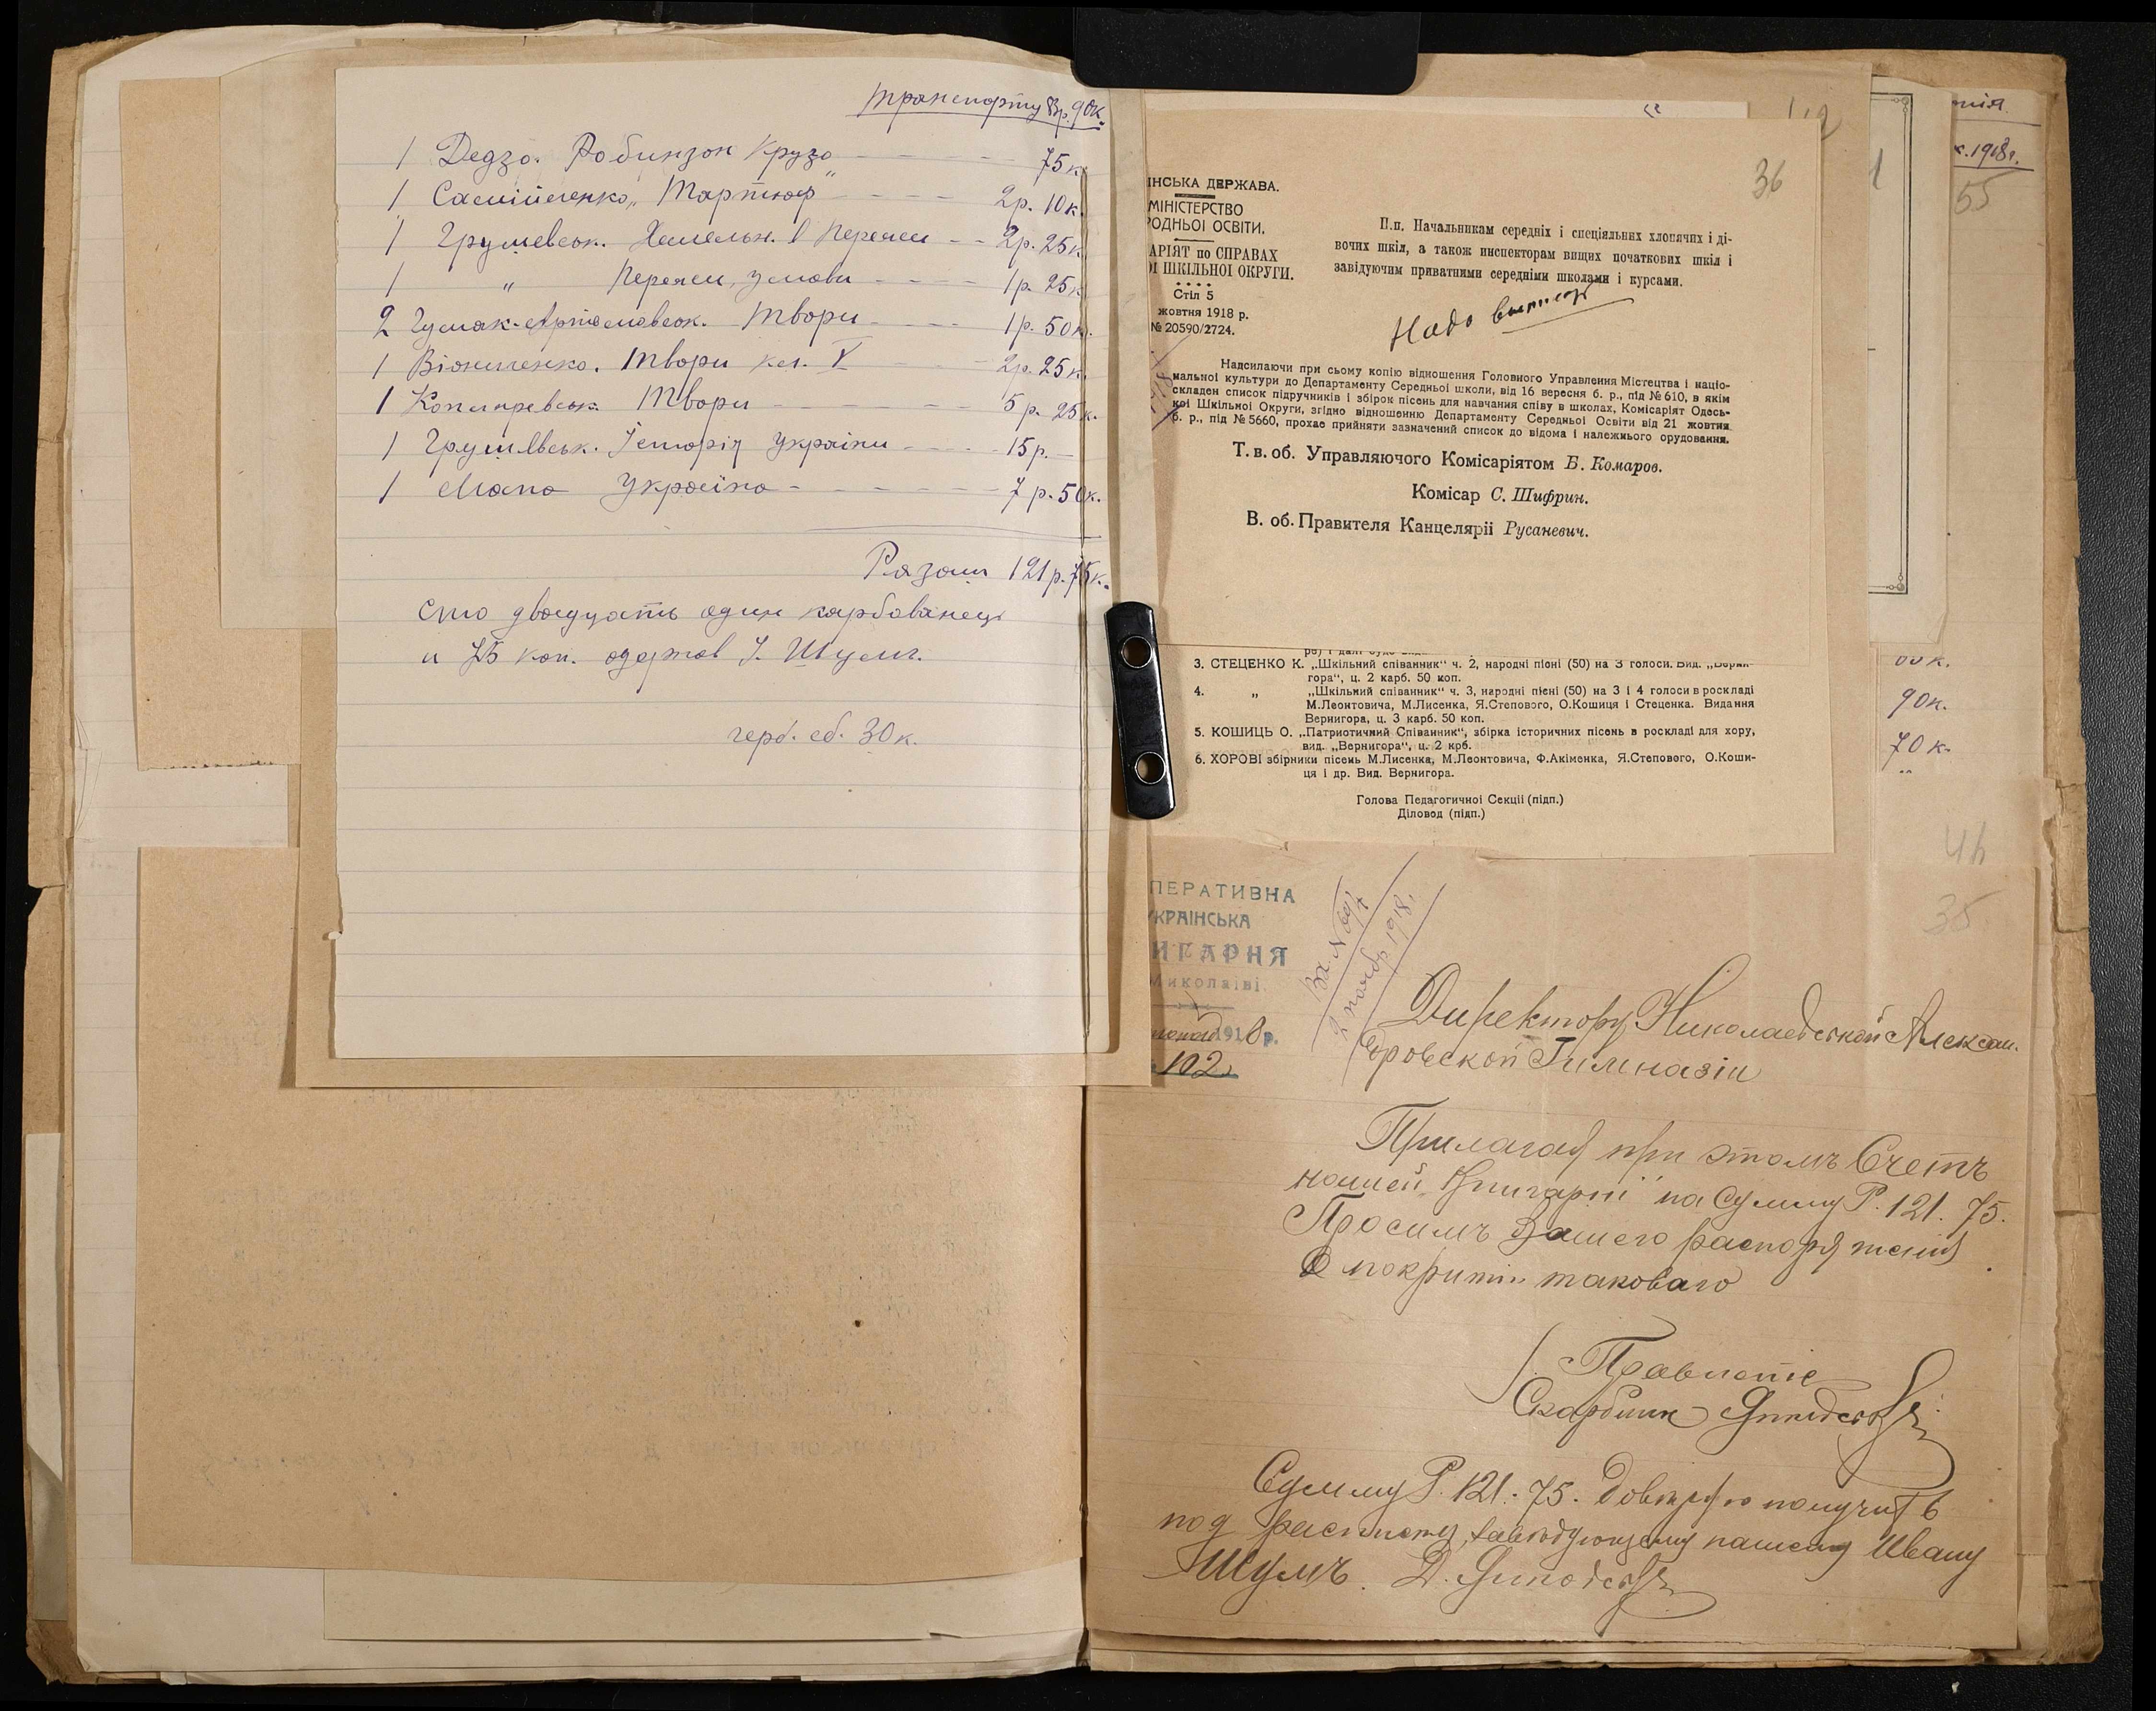 транспорту 8р. 90к.
1 Дедзо. Робинзон Крузо 75к
1 Самійленко „Тартюф" 2р. 10к.
1 Грушевськ. Хмельн. в Переясл 2р. 25к
1 " Переясл. умови 1р. 25к
2 Гулак-Артемовськ. Твори 1р. 50к.
1 Винниченко. Твори кн. V 2р. 25к.
1 Твори 5р. 25к.
1 Грушевськ. Історія України 15р.—
1 Мапа Україна 7р. 50к.
Разом 121р. 75к.
Сто двадцать один карбованець
и 75 коп. одержав І. Шулм.
герб. сб. 30к.
42
36
ІНСЬКА ДЕРЖАВА.
МІНІСТЕРСТВО
РОДНЬОЇ ОСВІТИ.
АРІЯТ по СПРАВАХ
ОЇ ШКІЛЬНОЇ ОКРУГИ.
Стіл 5
жовтня 1918 р.
№ 20590/2724.
П.п. Начальникам середніх і спеціяльних хлопячих і ді-
вочих шкіл, а також инспекторам вищих початкових шкіл і
завідуючим приватними середніми школами і курсами.
Надо
Надсилаючи при сьому копію відношення Головного Управлення Містецтва і націо-
мальної культури до Департаменту Середньої школи, від 16 вересня б. р., під № 610, в якім
складен список підручників і збірок пісень для навчання співу в школах, Комісаріят Одесь-
кої Шкільмої Округи, згідно відношенню Департаменту Середньої Освіти від 21 жовтня
б. р., під № 5660, прохає прийняти зазначений список до відома і належмого орудовання.
Т. в. об. Управляючого Комісаріятом Б. Комаров.
Комісар С. Шифрин.
В. об. Правителя Канцелярії Русаневич.
3. СТЕЦЕНКО К. „Шкільний співанник" ч. 2, народні піоні (50) на 3 голоси. Вид. „Верни-
гора", ц. 2 карб. 50 коп.
4. „ „Шкільмий співанник" ч. 3, народні пісні (50) на 3 і 4 голоси в роскладі
М.Леонтовича, М.Лисенка, Я.Степового, О.Кошиця і Стеценка. Видання
Вернигора, ц. 3 карб. 50 коп.
5. КОШИЦЬ О. „Патриотичмий Співанник", збірка історичних пісень в роскладі для хору,
вид. „Вернигора", ц. 2 крб.
6. ХОРОВІ збірники пісень М.Лисенка, М.Леонтовича, Ф.Акіменка, Я.Степового, О.Коши-
ця і др. Вид. Вернигора.
Голова Педагогичної Секції (підп.)
Діловод (підп.)
1
к. 1918г.
55
90к.
70к.
46
35
ПЕРАТИВНА
УКРАЇНСЬКА
ИГАРНЯ
Миколаїві.
1918р.
102
Вх. №
2 ноябр 1918г.
Директору Николаевской Алексан.
дровской Гимназіи
Прилагая при этомъ Счетъ
нашей "Книгарні" на Сумму Р. 121. 75.
Просимъ Вашего распоряженія
О покритіи таковаго
Правленіе
Скарбник
Сумму Р. 121.-75. довѣряю получить
под расписку завѣдующему нашему Ивану
Шулмъ. Д.